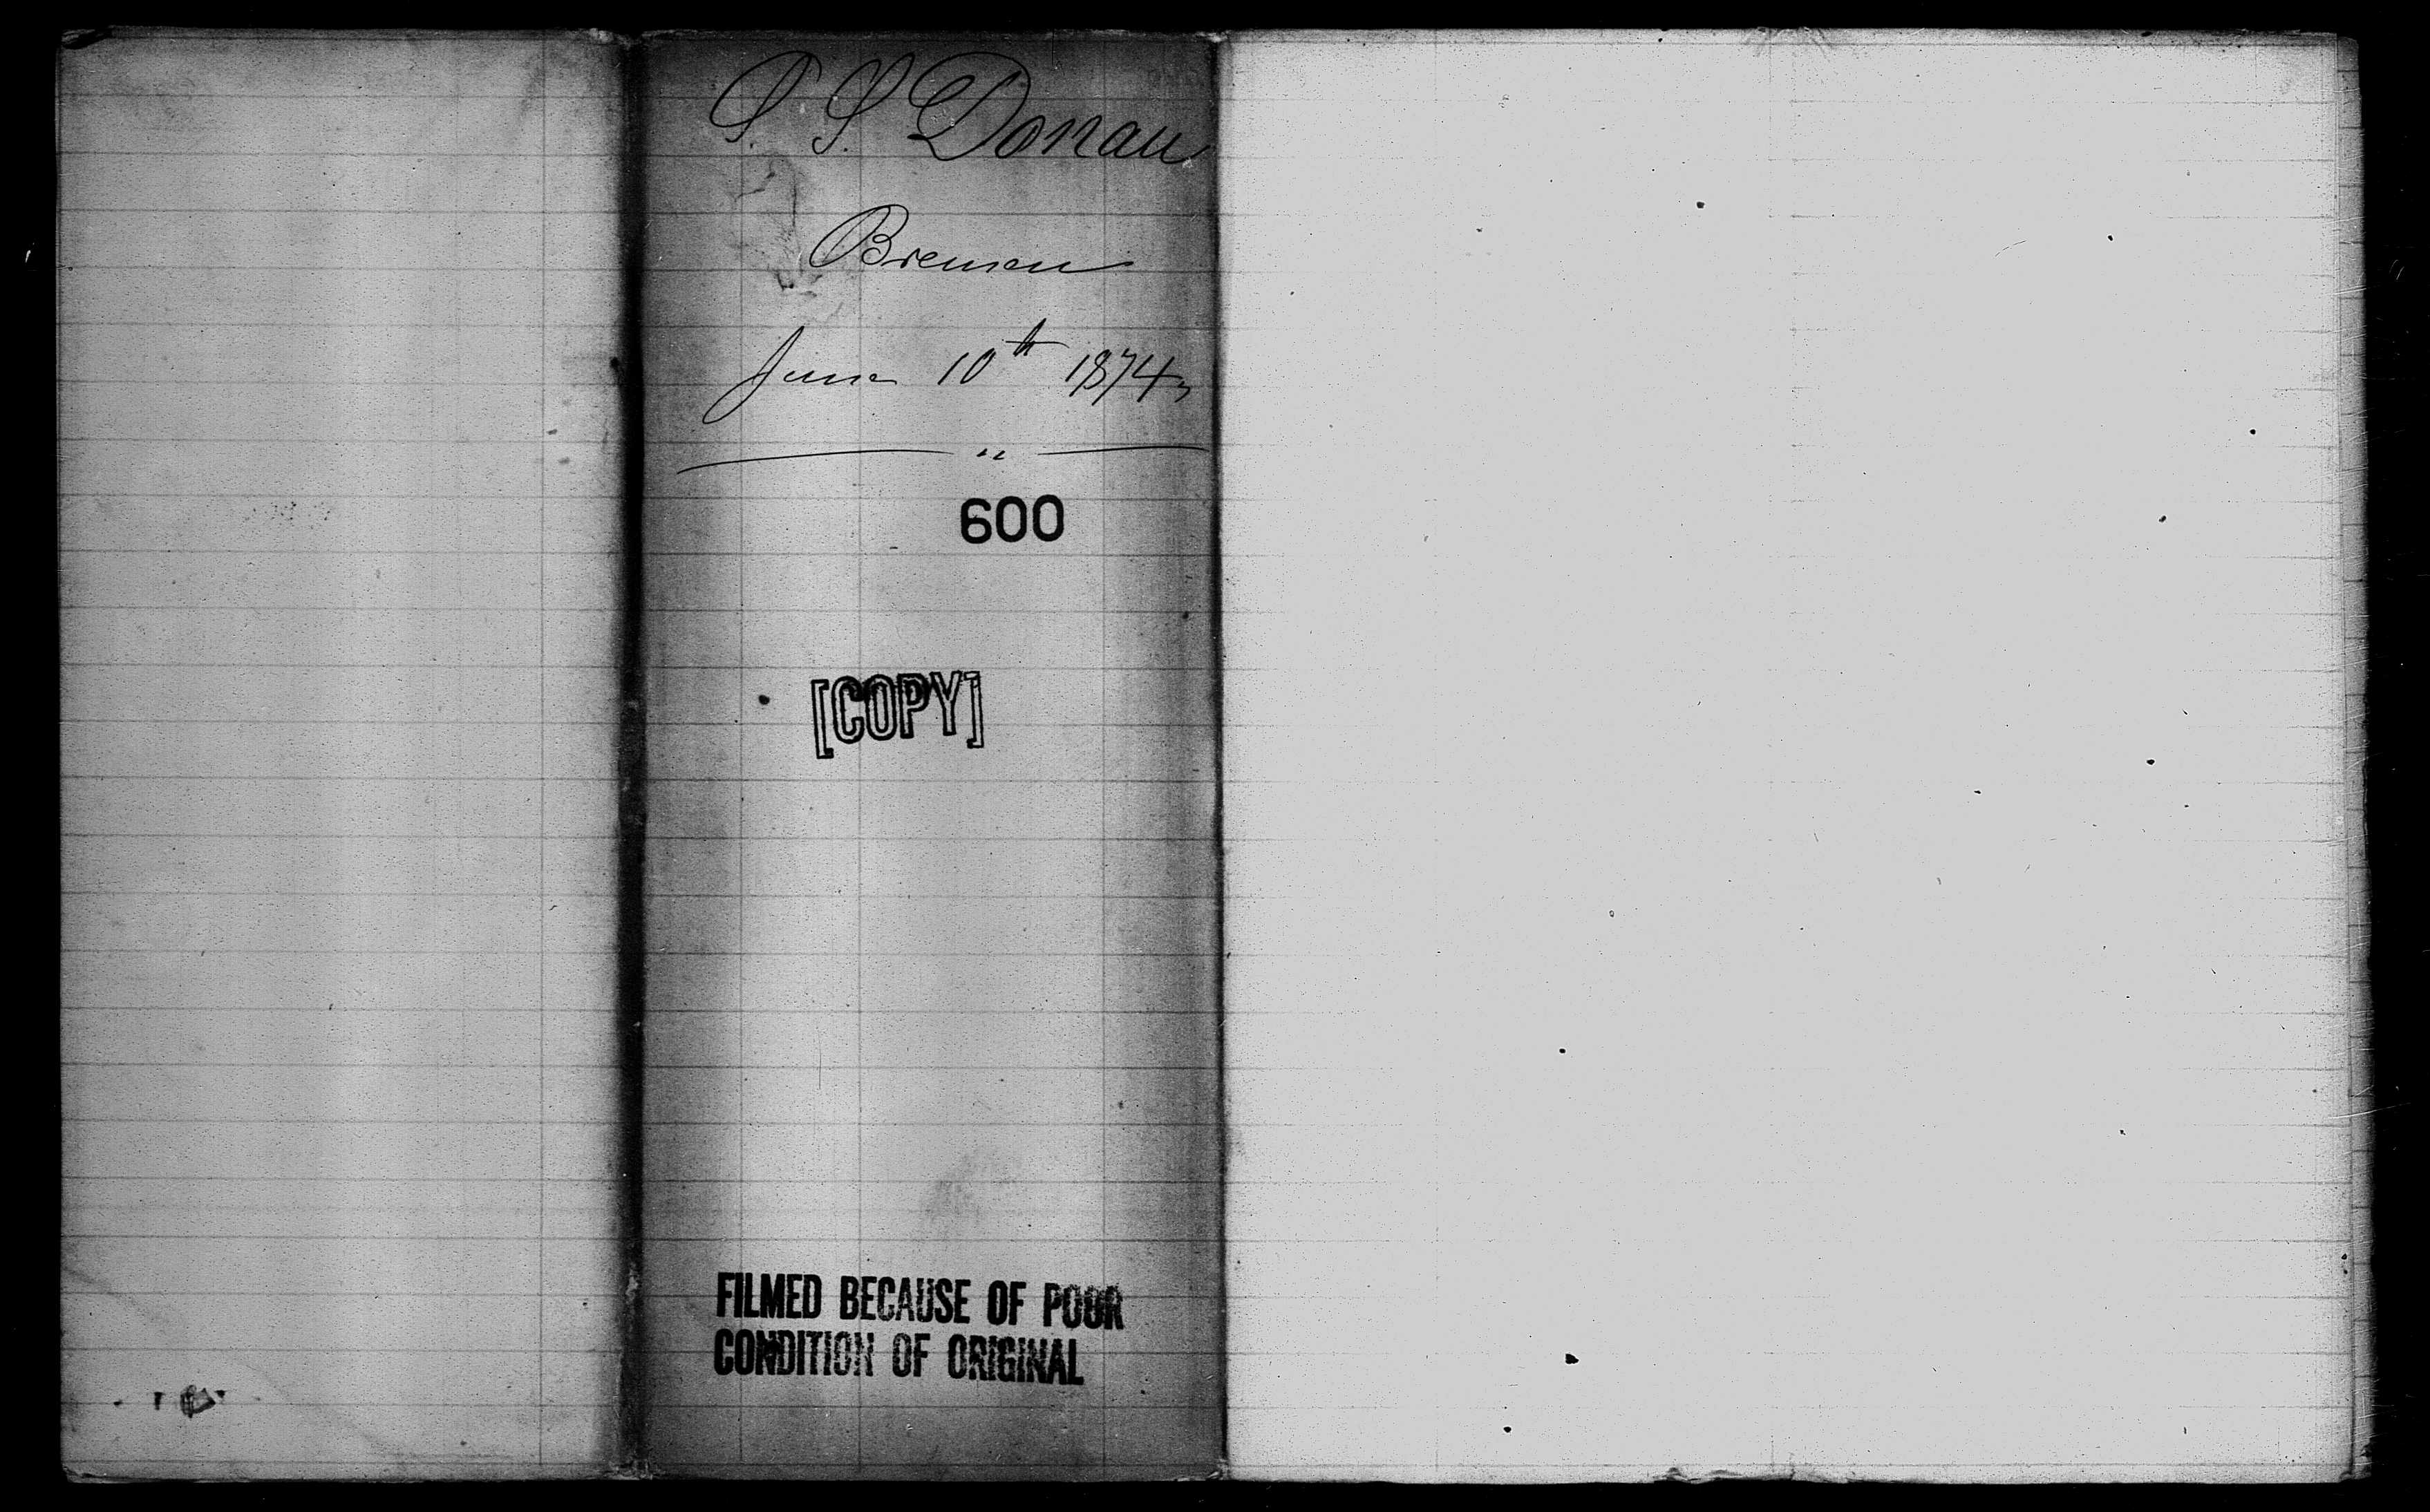 S. S. Donau
Bremen
June 10th 1874
600
[COPY]
FILMED BECAUSE OF POOR
CONDITION OF ORIGINAL